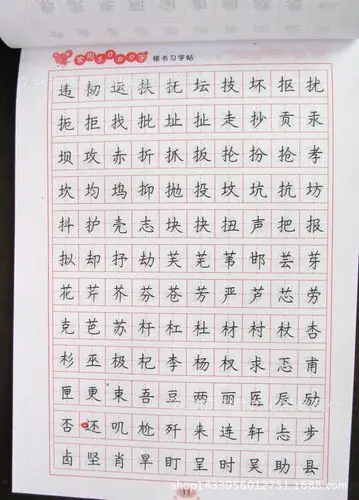 常用5000字 楷书习字帖
违韧运扶抚坛技坏抠扰
扼拒找批址扯走抄贡汞
坝攻赤折抓扳抡扮抢孝
坎均坞抑抛投坟坑抗坊
抖护壳志块抉扭声把报
拟却抒劫芙芜苇邯芸芽
花芹芥芬苍芳严芦芯劳
克芭苏杆杠杜材村杖杏
杉巫极杞李杨权求忑甫
匣更束吾豆两丽医辰励
否还叽尬歼来连轩忐步
卤坚肖旱盯呈时吴助县
11
shop1433956012751 1688.com